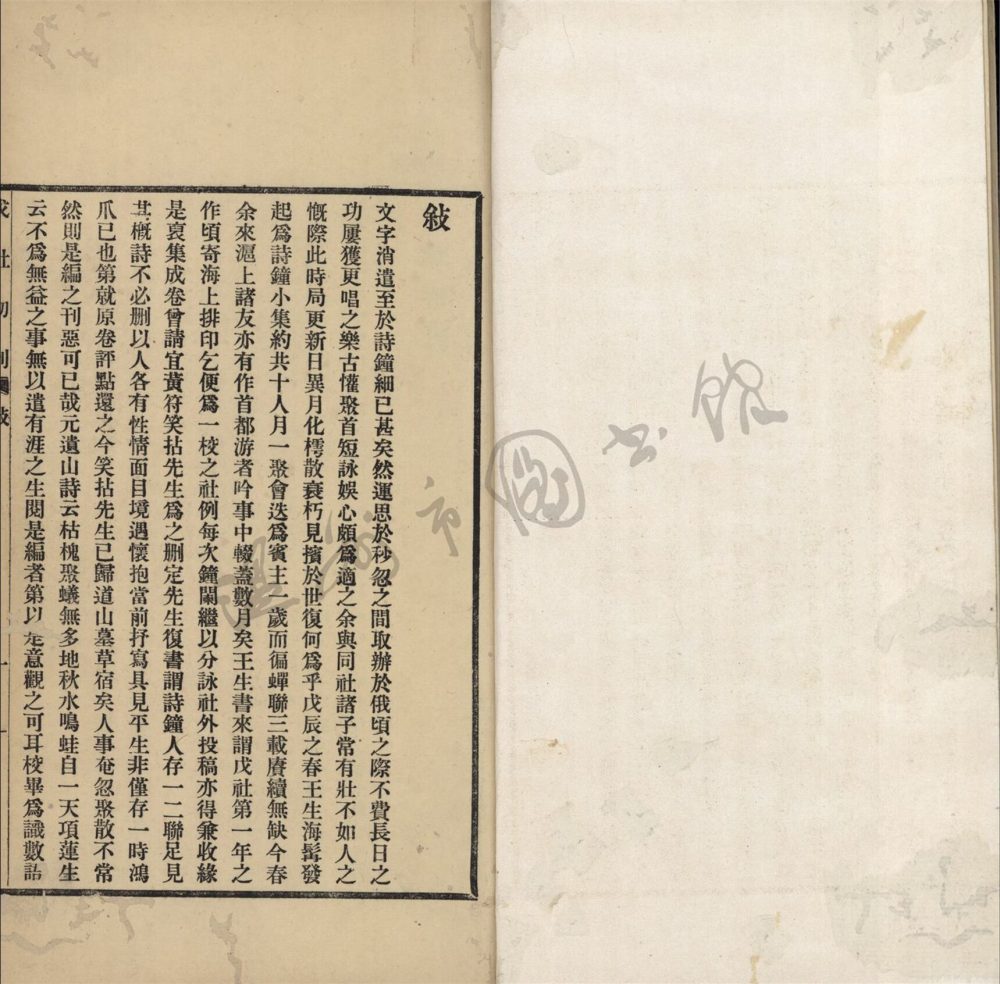 敍
文字消遣至於詩鐘細已甚矣然運思於秒忽之間取辦於俄頃之際不費長日之
功屢獲更唱之樂古懽聚首短詠娛心頗爲適之余與同社諸子常有壯不如人之
慨際此時局更新日異月化樗散衰朽見擯於世復何爲乎戊辰之春王生海髯發
起爲詩鐘小集約共十人月一聚會迭爲賓主一歲而徧蟬聯三載賡續無缺今春
余來滬上諸友亦有作首都游者吟事中輟蓋數月矣王生書來謂戊社第一年之
作頃寄海上排印乞便爲一校之社例每次鐘闌繼以分詠社外投稿亦得兼收緣
是裒集成卷曾請宜黃符笑拈先生爲之删定先生復書謂詩鐘人存一二聯足見
其概詩不必删以人各有性情面目境遇懷抱當前抒寫具見平生非僅存一時鴻
爪已也第就原卷評點還之今笑拈先生已歸道山墓草宿矣人事奄忽聚散不常
然則是編之刊惡可已哉元遺山詩云枯槐聚蟻無多地秋水鳴蛙自一天項蓮生
云不爲無益之事無以遣有涯之生閱是編者第以是意觀之可耳校畢爲識數語
戊社初刊 敍 一
溫州市圖書館